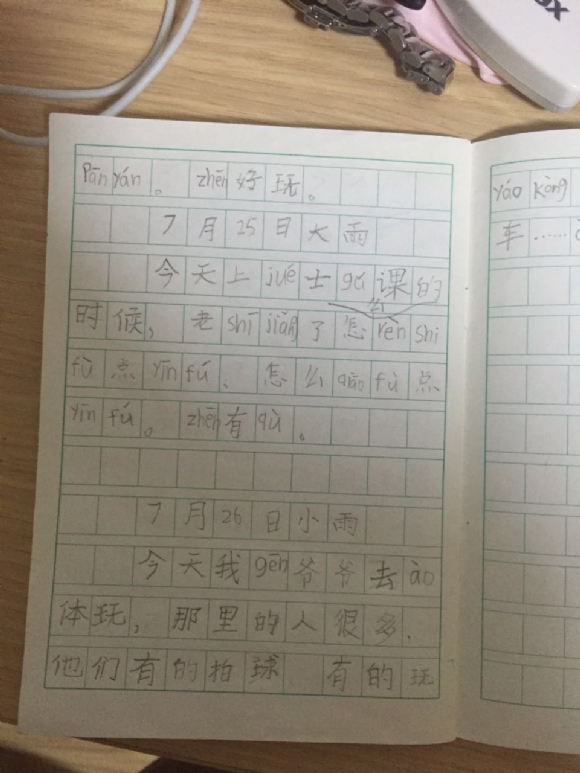 Pān yán。zhēn好玩。
7月25日大雨
今天上jué士gǔ课的
时候，老shī jiǎng了怎么rèn shi
fù点yīn fú、怎么qiāo fù点
yīn fú。zhēn有qù。
7月26日小雨
今天我gēn爷爷去ào
体玩，那里的人很多，
他们有的拍球 有的玩
yáo kòng
车……